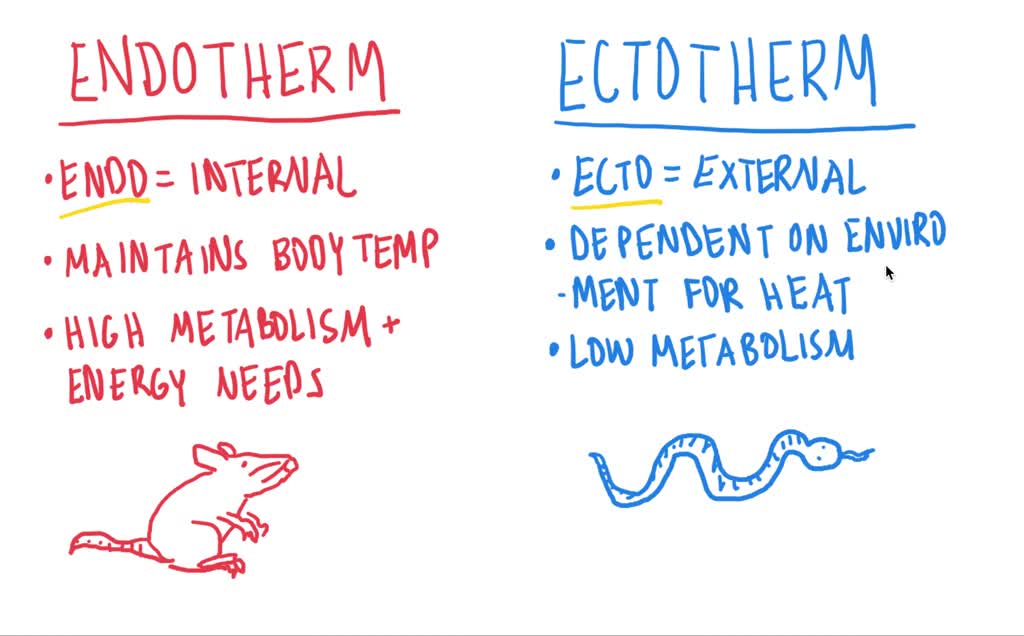 ENDOTHERM
• ENDO = INTERNAL
• MAINTAINS BODY TEMP
• HIGH METABOLISM +
ENERGY NEEDS
ECTOTHERM
• ECTO = EXTERNAL
• DEPENDENT ON ENVIRO
-MENT FOR HEAT
• LOW METABOLISM